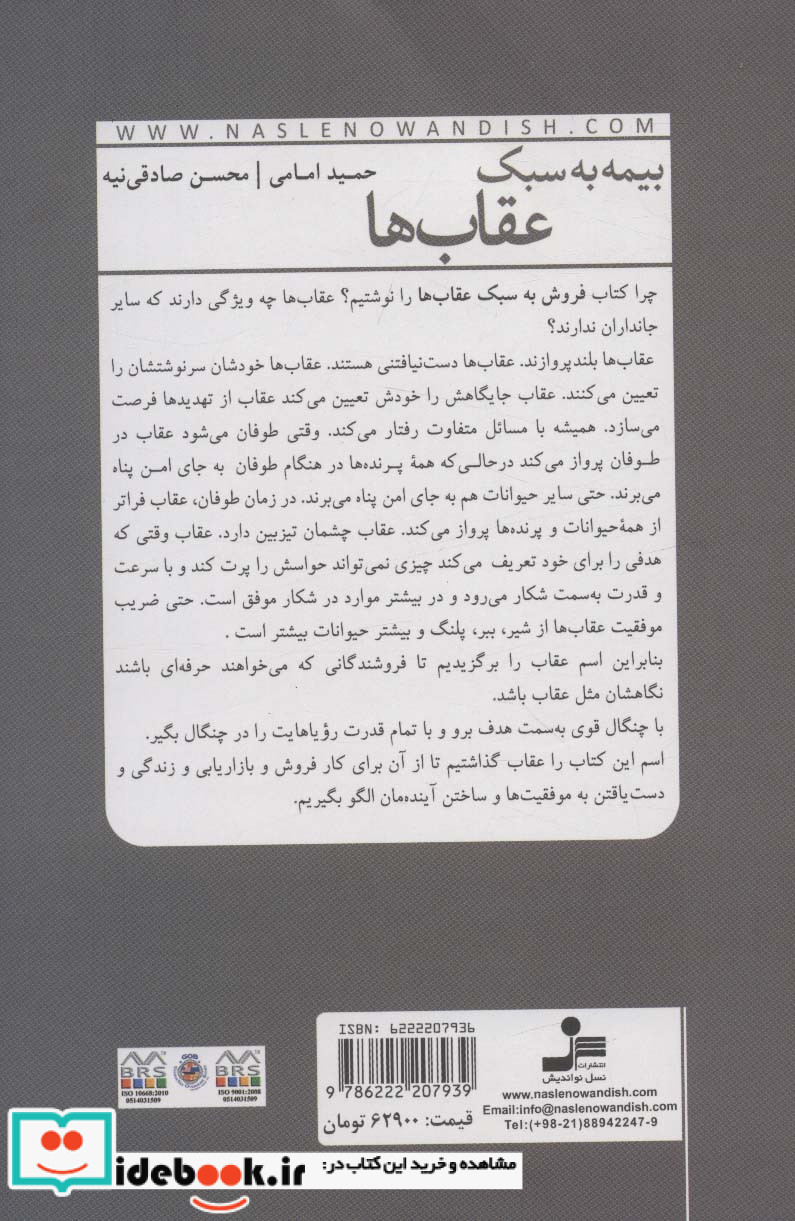 WWW.NASLENOWANDISH.COM
بیمه به سبک
عقاب‌ها
حمید امامی | محسن صادقی‌نیه
چرا کتاب فروش به سبک عقاب‌ها را نوشتیم؟ عقاب‌ها چه ویژگی دارند که سایر
جانداران ندارند؟
عقاب‌ها بلندپروازند. عقاب‌ها دست‌نیافتنی هستند. عقاب‌ها خودشان سرنوشتشان را
تعیین می‌کنند. عقاب جایگاهش را خودش تعیین می‌کند عقاب از تهدیدها فرصت
می‌سازد. همیشه با مسائل متفاوت رفتار می‌کند. وقتی طوفان می‌شود عقاب در
طوفان پرواز می‌کند درحالی‌که همهٔ پرنده‌ها در هنگام طوفان به جای امن پناه
می‌برند. حتی سایر حیوانات هم به جای امن پناه می‌برند. در زمان طوفان، عقاب فراتر
از همهٔ حیوانات و پرنده‌ها پرواز می‌کند. عقاب چشمان تیزبین دارد. عقاب وقتی که
هدفی را برای خود تعریف می‌کند چیزی نمی‌تواند حواسش را پرت کند و با سرعت
و قدرت به‌سمت شکار می‌رود و در بیشتر موارد در شکار موفق است. حتی ضریب
موفقیت عقاب‌ها از شیر، ببر، پلنگ و بیشتر حیوانات بیشتر است .
بنابراین اسم عقاب را برگزیدیم تا فروشندگانی که می‌خواهند حرفه‌ای باشند
نگاهشان مثل عقاب باشد.
با چنگال قوی به‌سمت هدف برو و با تمام قدرت رؤیاهایت را در چنگال بگیر.
اسم این کتاب را عقاب گذاشتیم تا از آن برای کار فروش و بازاریابی و زندگی و
دست‌یاقتن به موفقیت‌ها و ساختن آینده‌مان الگو بگیریم.
ISBN: 6222207936
9 786222 207939
قیمت: ۶۲۹۰۰ تومان
انتشارات
نسل نواندیش
www.naslenowandish.com
Email:info@naslenowandish.com
Tel:(+98-21)88942247-9
BRS
ISO 10668:2010
0514031509
GOB
BRS
ISO 9001:2008
0514031509
مشاهده و خرید این کتاب در:
idebook.ir